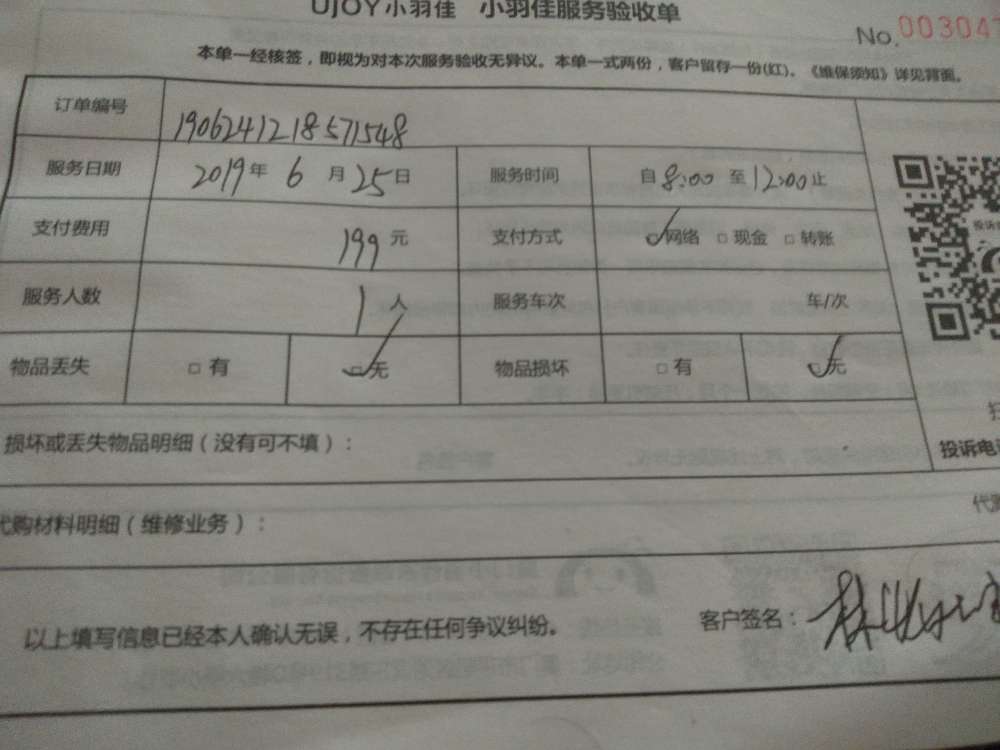 UJOY小羽佳 小羽佳服务验收单
No. 00304
本单一经核签，即视为对本次服务验收无异议。本单一式两份，客户留存一份(红)。《维保须知》详见背面。
订单编号 1906241218571548
服务日期 2019年6月25日 服务时间 自8:00至12:00止
支付费用 199元 支付方式 ☑网络 □现金 □转账
服务人数 1人 服务车次 车/次
物品丢失 □有 ☑无 物品损坏 □有 ☑无
损坏或丢失物品明细（没有可不填）：
投诉电
代购材料明细（维修业务）：
以上填写信息已经本人确认无误，不存在任何争议纠纷。 客户签名：